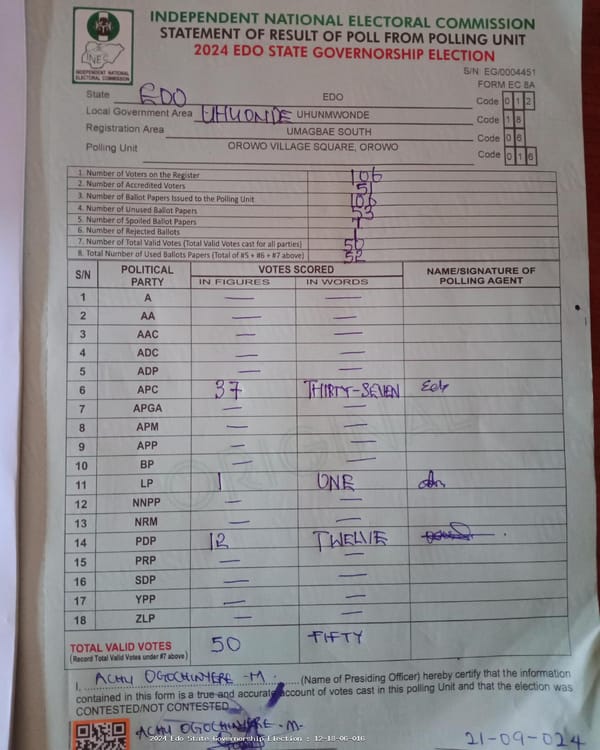 INDEPENDENT NATIONAL ELECTORAL COMMISSION
STATEMENT OF RESULT OF POLL FROM POLLING UNIT
2024 EDO STATE GOVERNORSHIP ELECTION
INEC
INDEPENDENT NATIONAL ELECTORAL COMMISSION
S/N EG/0004451
FORM EC 8A
State EDO EDO Code 0 1 2
Local Government Area UHUONDE UHUNMWONDE Code 1 8
Registration Area UMAGBAE SOUTH Code 0 6
Polling Unit OROWO VILLAGE SQUARE, OROWO Code 0 1 6
1. Number of Voters on the Register 106
2. Number of Accredited Voters 51
3. Number of Ballot Papers Issued to the Polling Unit 106
4. Number of Unused Ballot Papers 53
5. Number of Spoiled Ballot Papers 1
6. Number of Rejected Ballots 1
7. Number of Total Valid Votes (Total Valid Votes cast for all parties) 50
8. Total Number of Used Ballots Papers (Total of #5 + #6 + #7 above) 52
S/N POLITICAL PARTY VOTES SCORED NAME/SIGNATURE OF POLLING AGENT
IN FIGURES IN WORDS
1 A — —
2 AA — —
3 AAC — —
4 ADC — —
5 ADP — —
6 APC 37 THIRTY-SEVEN
7 APGA — —
8 APM — —
9 APP — —
10 BP — —
11 LP 1 ONE
12 NNPP — —
13 NRM — —
14 PDP 12 TWELVE
15 PRP — —
16 SDP — —
17 YPP — —
18 ZLP — —
ORIGINAL
TOTAL VALID VOTES 50 FIFTY
(Record Total Valid Votes under #7 above)
I, ACHU OGOCHINYERE -M. (Name of Presiding Officer) hereby certify that the information
contained in this form is a true and accurate account of votes cast in this polling Unit and that the election was
CONTESTED/NOT CONTESTED
ACHU OGOCHINYERE -M-
2024 Edo State Governorship Election : 12-18-06-016
21-09-024